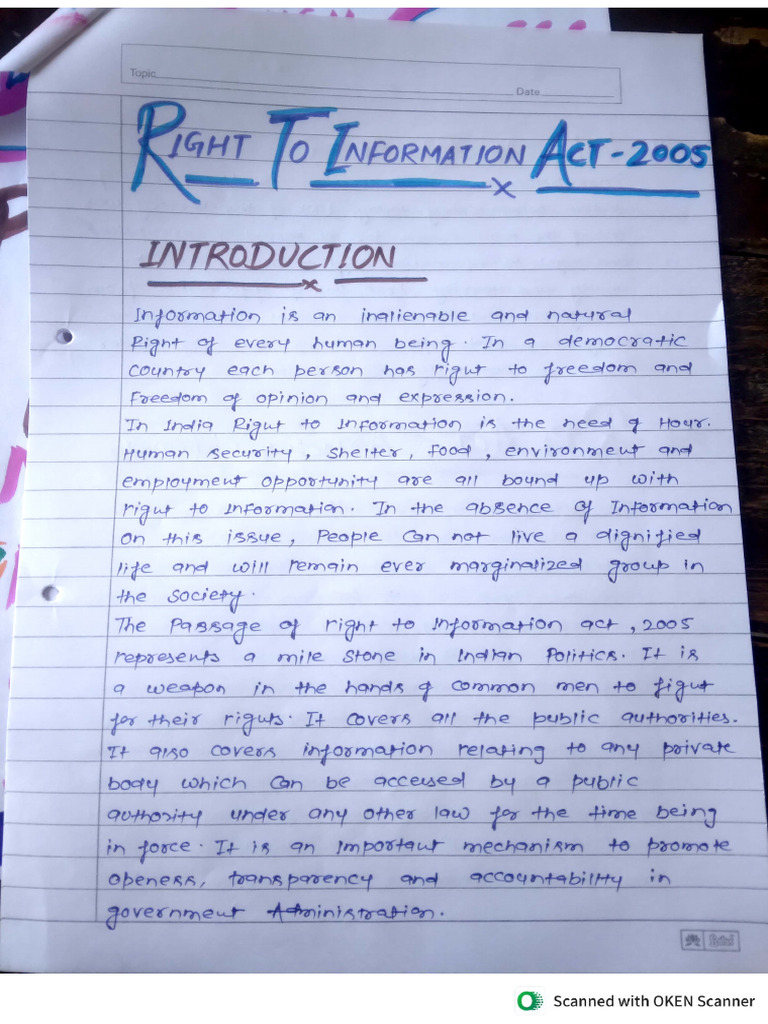 Topic
Date
RIGHT TO INFORMATION ACT-2005
INTRODUCTION
Information is an inalienable and natural
Right of every human being. In a democratic
country each person has right to freedom and
Freedom of opinion and expression.
In India Right to Information is the need of Hour.
Human security, shelter, food, environment and
employment opportunity are all bound up with
right to Information. In the absence of Information
on this issue, People can not live a dignified
life and will remain ever marginalized group in
the society.
The Passage of right to Information act, 2005
represents a mile stone in Indian Politics. It is
a weapon in the hands of common men to fight
for their rights. It covers all the public authorities.
It also covers information relating to any private
body which can be accesed by a public
authority under any other law for the time being
in force. It is an important mechanism to promote
openess, transparency and accountability in
government Administration.
Scanned with OKEN Scanner